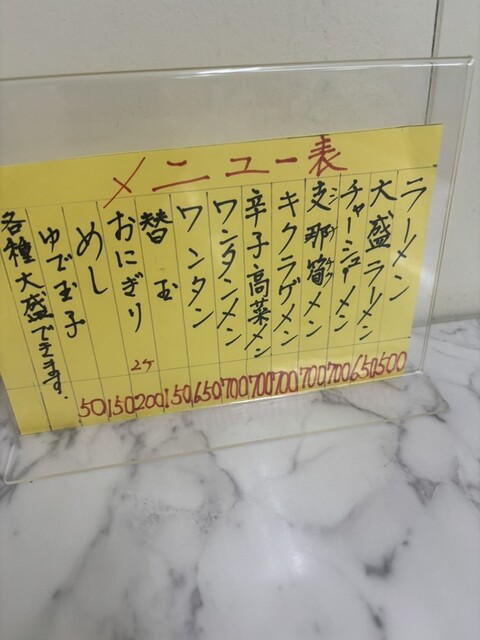 メニュー表
ラーメン 500
大盛ラーメン 650
チャーシューメン 700
支那筍メン 700
キクラゲメン 700
辛子高菜メン 700
ワンタンメン 700
ワンタン 650
替玉 150
おにぎり 2ケ 200
めし 150
ゆで玉子 50
各種大盛できます.